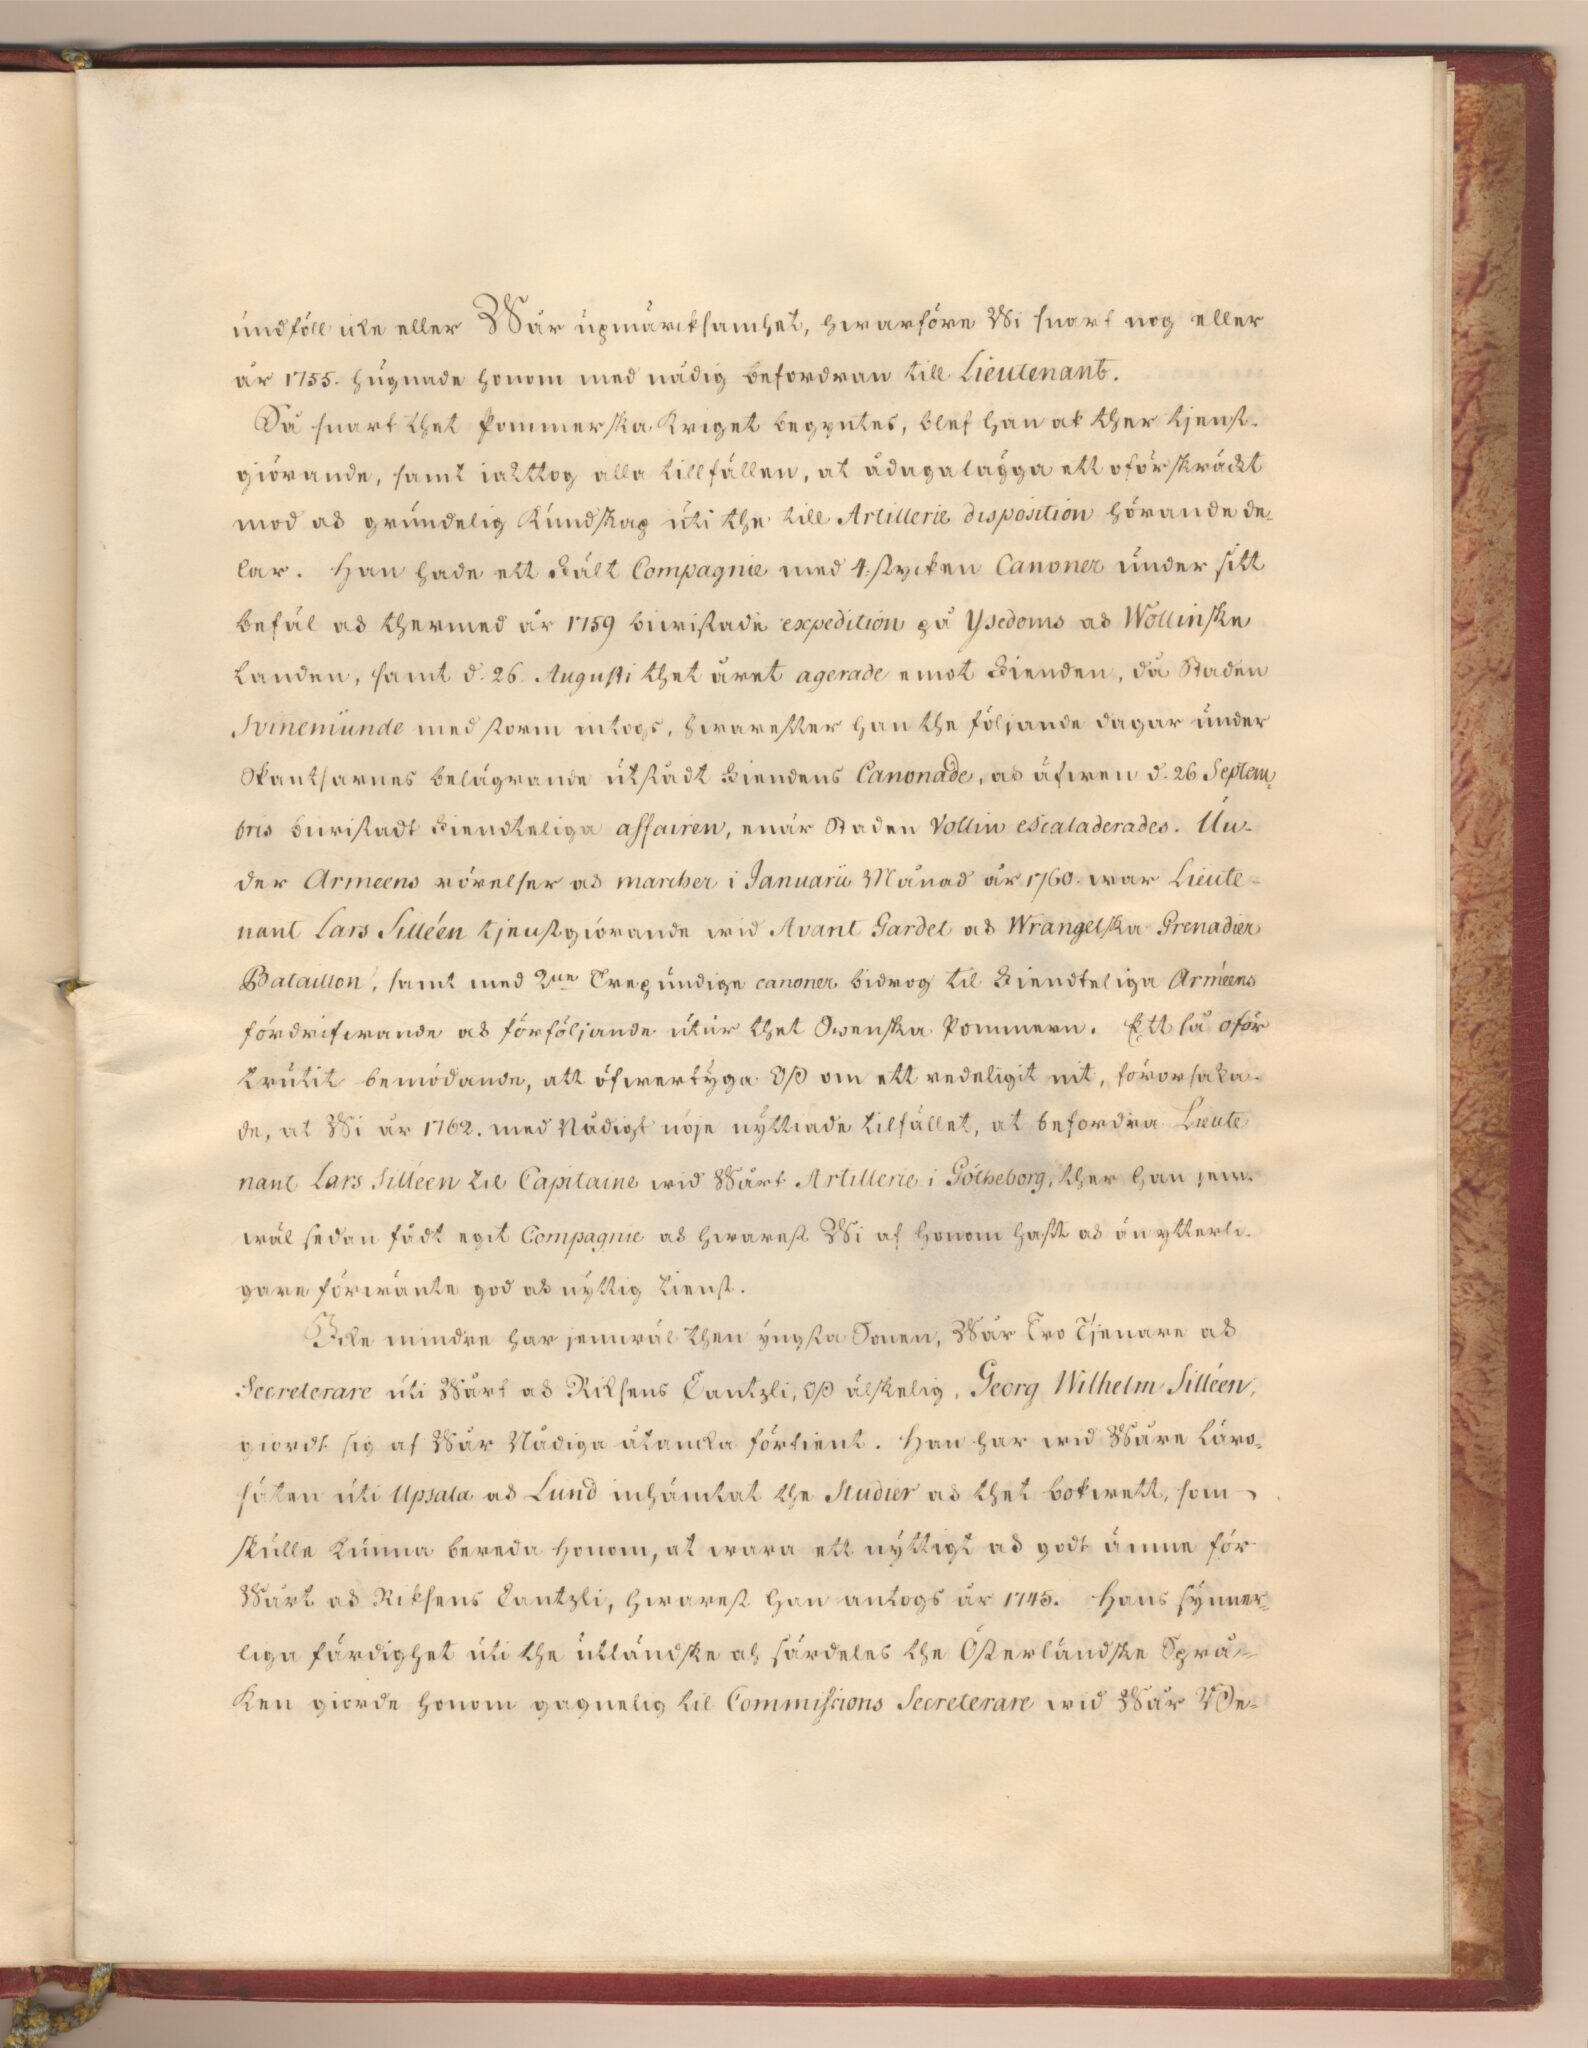 undföll icke eller Wår upmärcksamhet, hwarföre Wi snart nog eller
år 1755. hugnade honom med nådig befordran till Lieutenant.
Så snart thet Pommerska Kriget begyntes, blef han ock ther tjenst-
giörande, samt iakttog alla tillfällen, at ådagalägga ett oförskräckt
mod och grundelig Kundskap uti the till Artillerie disposition hörande de-
lar. Han hade ett Fält Compagnie med 4. stycken Canoner under sitt
befäl och thermed år 1759 biwistade expedition på Ysedoms och Wollinske
Landen, samt d. 26. Augusti thet året agerade emot Fienden, då Staden
Svinemünde med storm intogs, hwarefter han the följande dagar under
Skantsarnes belägrande utstådt Fiendens Canonade, och äfwen d. 26 Septem-
bris biwistadt Fiendteliga affairen, enär Staden Vollin escaladerades. Un-
der Armeens rörelser och marcher i Januarii Månad år 1760. war Lieute-
nant Lars Silléen tjenstgiörande wid Avant Gardet och Wrangelska Grenadier
Bataillon, samt med 2ne Trepundige canoner bidrog til Fiendteliga Arméens
fördrifwande och förföljande utur thet Swenska Pommern. Ett så oför
trutit bemödande, att öfwertyga Oss om ett redeligit nit, förorsaka-
de, at Wi år 1762. med Nådigt nöje nyttiade tilfället, at befordra Lieute
nant Lars Silléen til Capitaine wid Wårt Artillerie i Götheborg, ther han jem-
wäl sedan fådt egit Compagnie och hwarest Wi af honom haft och än ytterli-
gare förwänte god och nyttig tienst.
Icke mindre har jemwäl then yngsta Sonen, Wår Tro Tjenare och
Secreterare uti Wårt och Riksens Cantzli, Oss älskelig, Georg Wilhelm Silléen,
giordt sig af Wår Nådiga åtancka förtient. Han har wid Wåre Läro-
säten uti Upsala och Lund inhämtat the Studier och thet bokwett, som
skulle kunna bereda honom, at wara ett nyttigt och godt ämne för
Wårt och Riksens Cantzli, hwarest han antogs år 1745. Hans synner-
liga färdighet uti the utländske och särdeles the Österländske Språ-
ken giorde honom gagnelig til Commissions Secreterare wid Wår Be-